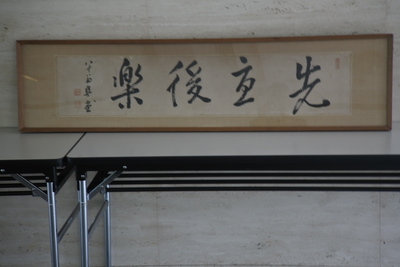 先憂後楽